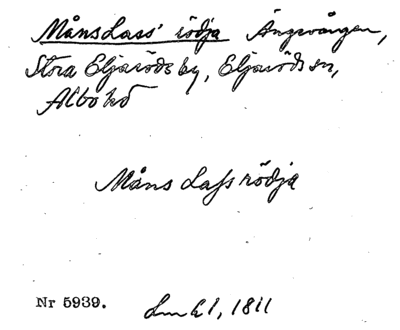 Måns Lass' rödja Ängavången,
Stora Eljaröds by, Eljaröds sn,
Albo hd
Måns Lass rödja
Nr 5939. Lm 61, 1811